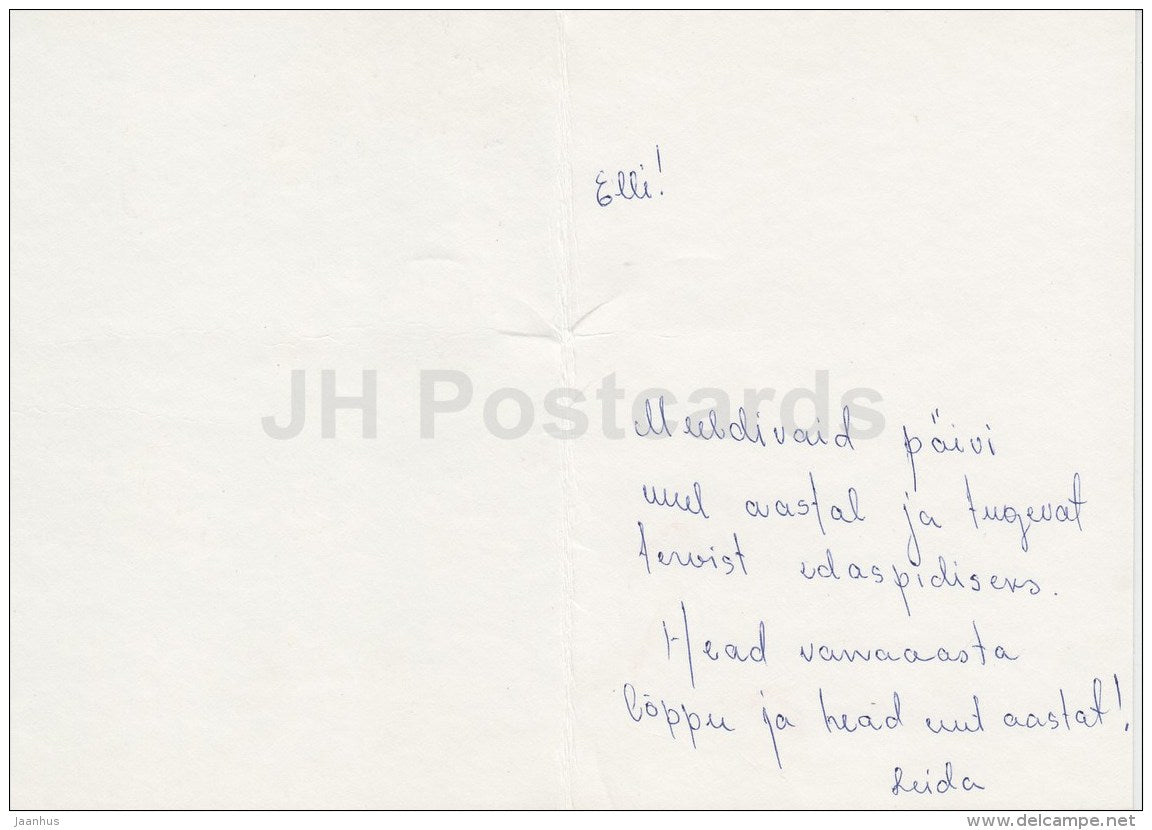 Elli!
JH Postcards
Meeldivaid päivi
uuel aastal ja tugevat
tervist edaspidiseks.
Head vanaaasta
lõppu ja head uut aastat!
Leida
Jaanhus
www.delcampe.net